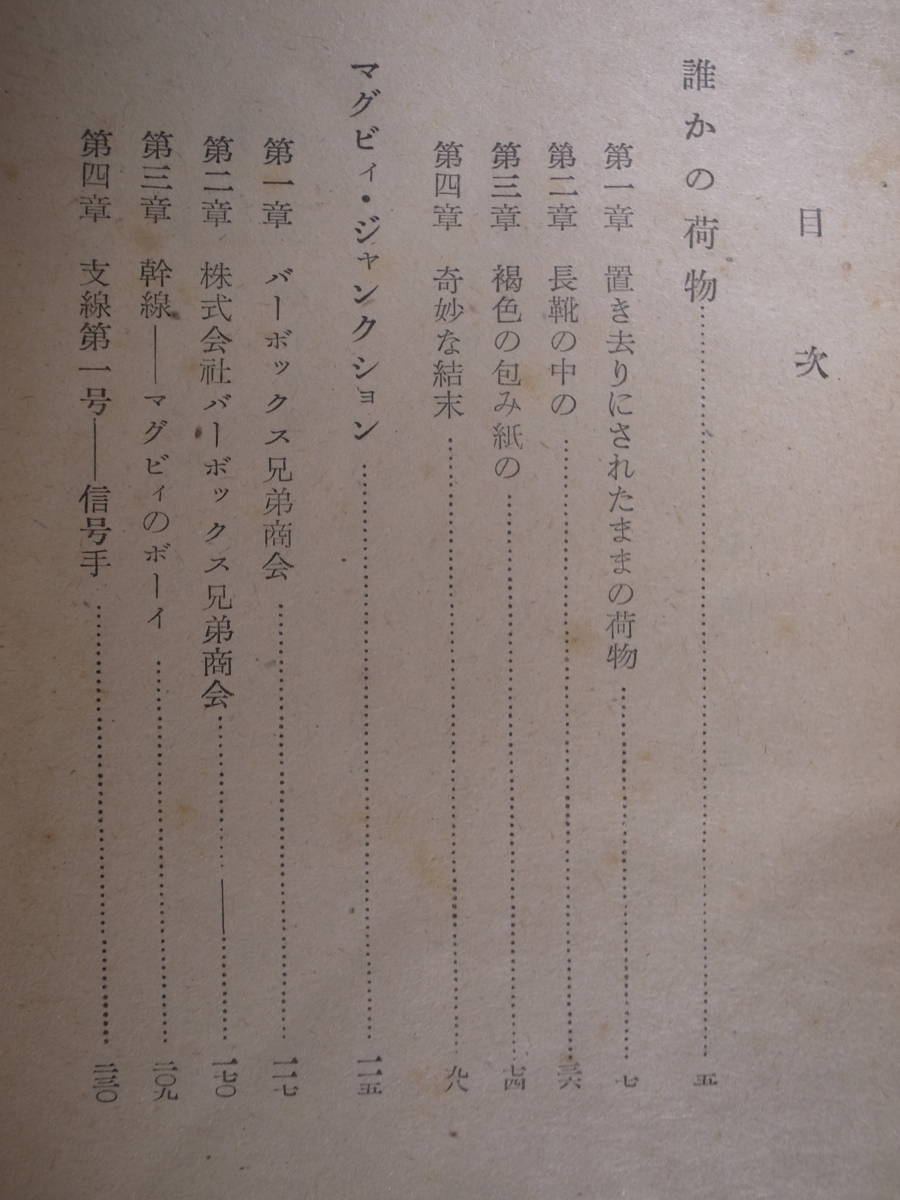 目次
誰かの荷物……………五
第一章 置き去りにされたままの荷物……………七
第二章 長靴の中の……………三六
第三章 褐色の包み紙の……………七四
第四章 奇妙な結末……………九八
マグビィ・ジャンクション……………一一五
第一章 バーボックス兄弟商会……………一一七
第二章 株式会社バーボックス兄弟商会……………一七〇
第三章 幹線――マグビィのボーイ……………二〇九
第四章 支線第一号――信号手……………二三〇